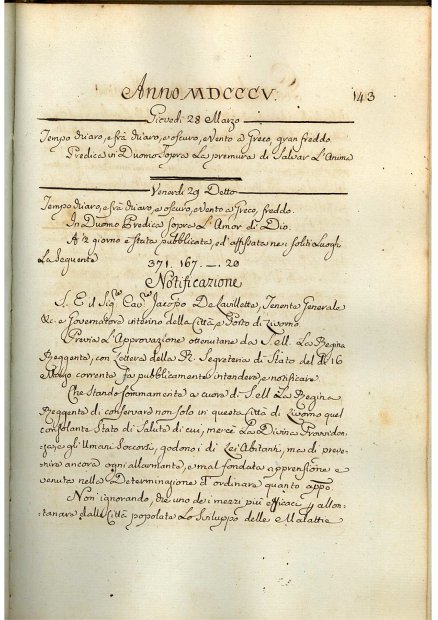 Anno MDCCCV.
143
Giovedì 28 Marzo
Tempo chiaro, e frà chiaro, e oscuro, e vento a Greco, gran freddo.
Predica in Duomo sopra La premura di Salvar L'Anima
Venerdì 29 Detto
Tempo chiaro, e frà chiaro, e oscuro, e vento a Greco, freddo.
In Duomo Predica sopra L'Amor di Dio.
A ½ giorno è stata pubblicata, ed affissata nei soliti Luoghi
La Seguente
371. 167. _. 20
Notificazione
S. E. il Sigre Cavre Jacopo De Lavillette, Tenente Generale
&c. e Governatore interino della Città, e Porto di Livorno.
Previa L'Approvazione ottenutane da S. M. La Regina
Reggente, con Lettera della R. Segreteria di Stato del dì 16
corrente fa pubblicamente intendere, e notificare
Che Stando Sommamente a cuore di S. M. La Regina
Reggente di conservare non solo in questa Città di Livorno quel
consolante Stato di Salute di cui, mercè La Divina Provviden-
za, e gli Umani Soccorsi, godono i di Lei Abitanti, ma di preve-
nire ancora ogni allarmante, e mal fondata apprensione e
venuta nella Determinazione d'ordinare quanto appo.
Non ignorando, che uno dei mezzi più efficaci p allon-
tanare dalle Città popolate Lo Sviluppo delle Malattie